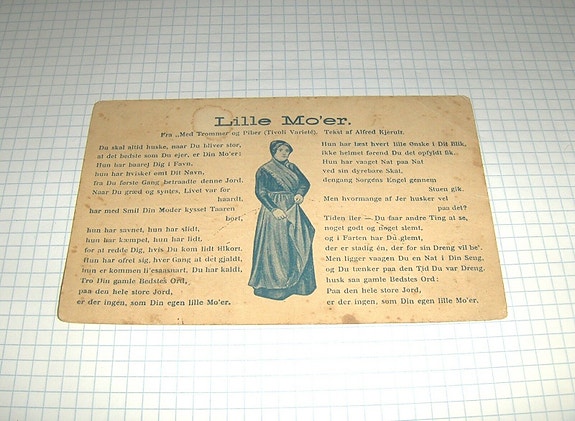 Lille Mo'er.
Fra „Med Trommer og Piber (Tivoli Varieté). Tekst af Alfred Kjerulf.
Du skal altid huske, naar Du bliver stor,
at det bedste som Du ejer, er Din Mo'er:
Hun har baaret Dig i Favn,
hun har hvisket ømt Dit Navn,
fra Du første Gang betraadte denne Jord.
Naar Du græd og syntes, Livet var for
haardt,
har med Smil Din Moder kysset Taaren
bort,
hun har savnet, hun har slidt,
hun har kæmpet, hun har lidt,
for at redde Dig, hvis Du kom lidt tilkort.
Hun har ofret sig, hver Gang at det gjaldt,
hun er kommen li'esaasnart, Du har kaldt,
Tro Din gamle Bedstes Ord,
paa den hele store Jord,
er der ingen, som Din egen lille Mo'er.
Hun har læst hvert lille Ønske i Dit Blik,
ikke helmet førend Du det opfyldt fik,
Hun har vaaget Nat paa Nat
ved sin dyrebare Skat,
dengang Sorgens Engel gennem
Stuen gik.
Men hvormange af Jer husker vel
paa det?
Tiden iler — Du faar andre Ting at se,
noget godt og noget slemt,
og i Farten har Du glemt,
der er stadig én, der for sin Dreng vil be'.
Men ligger vaagen Du en Nat i Din Seng,
og Du tænker paa den Tid Du var Dreng,
husk saa gamle Bedstes Ord:
Paa den hele store Jord,
er der ingen, som Din egen lille Mo'er.